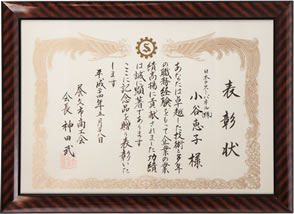 表彰状
小谷恵子様
あなたは卓越した技術と多年
の職務経験をもって企業の業
績高揚に貢献されました功績
は誠に顕著であります
ここに記念品を贈り表彰いた
します
平成二十四年五月八日
長久市商工会
会長 神田武